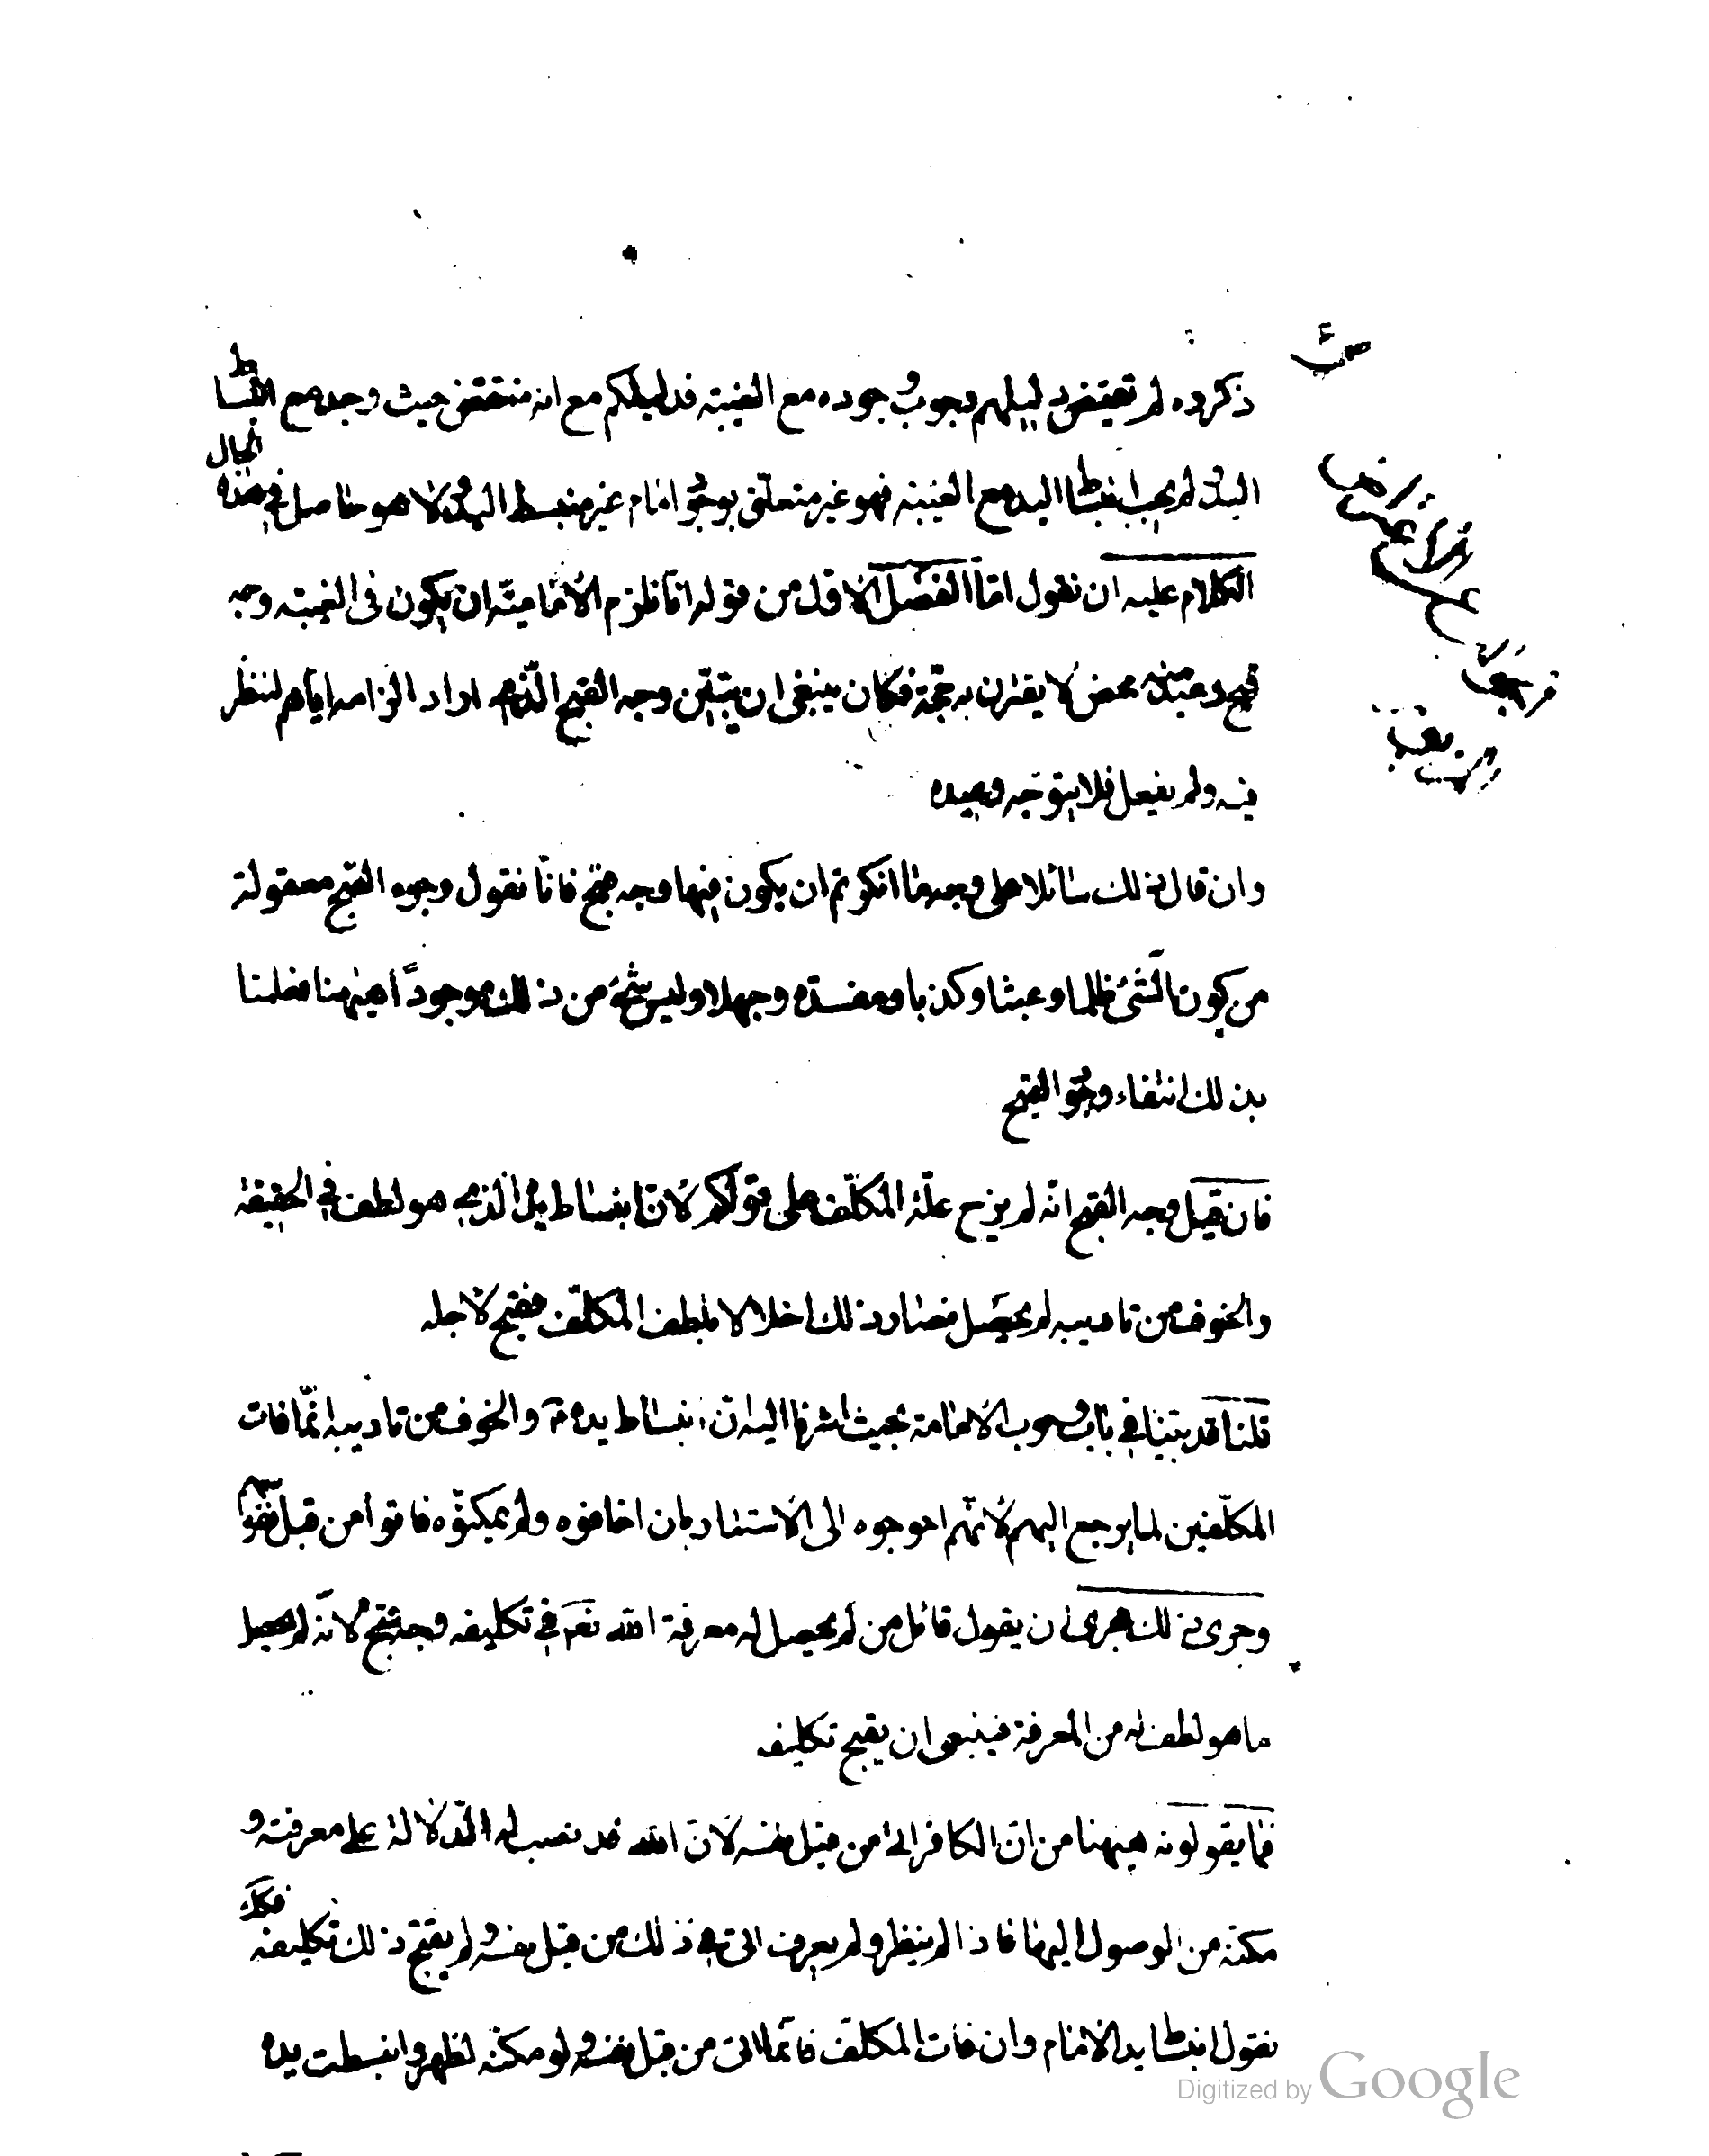 ذكروه لم يقتض دليلهم وجوب وجوده مع الغيبة فدليلكم مع انه منتقض حيث وجد مع انبساط
اليد ولم يجب انبساط اليد مع الغيبة فهو غير متعلق بوجوب امام غير منبسط اليد ولا هو حاصل في هذه الحال
الكلام عليه ان نقول امّا الفصل الاول من قوله انّا نلزم الاماميّة ان يكون في الغيبة وجه
قبح وعيد منه محض لا يقترن به حجّة فكان ينبغي ان يتبيّن وجه القبح الذي اراد الزامه ايّاهم لننظر
فيه ولم يفعل فلا يتوجّه وعيده
وان قال ذلك سائلا على وجه ما انكرتم ان يكون فيها وجه قبح فانّا نقول وجوه القبح معقولة
من كون الشئ ظلما وعبثا وكذبا ومفسدة وجهلا وليس شئ من ذلك موجوداً هيهنا فعلمنا
بذلك انتفاء وجوه القبح
فان قيل وجه القبح انّه لم يزح علّة المكلّف على قولكم لانّ انبساط يده الذي هو لطف في الحقيقة
والخوف من تاديبه لم يحصل فصار ذلك اخلالا بلطف المكلّف فقبح لاجله
قلنا قد بيّنا في باب وجوب الامامة بحيث اشرنا اليه انّ انبساط يده ع والخوف من تاديبه انّما فات
المكلّفين لما يرجع اليهم لانّهم احوجوه الى الاستتار بان اخافوه ولم يمكّنوه فاتوا من قبل نفوسهم
وجرى ذلك مجرى ان يقول قائل من لم يحصل له معرفة الله تعه في تكليفه وجه قبح لانّه لم يحصل
ما هو لطف له من المعرفة فينبغي ان يقبح تكليفه
فما يقولونه هيهنا من انّ الكافر اتى من قبل نفسه لانّ الله قد نصب له الدّلالة على معرفته و
مكنه من الوصول اليها فاذا لم ينظر ولم يعرف اتى في ذلك من قبل نفسه ولم يقبّح ذلك تكليفه فكك
نقول انبساط يد الامام وان فات المكلّف فانّما اتى من قبل نفسه ولو مكنّه لظهر وانبسطت يده
Digitized by Google